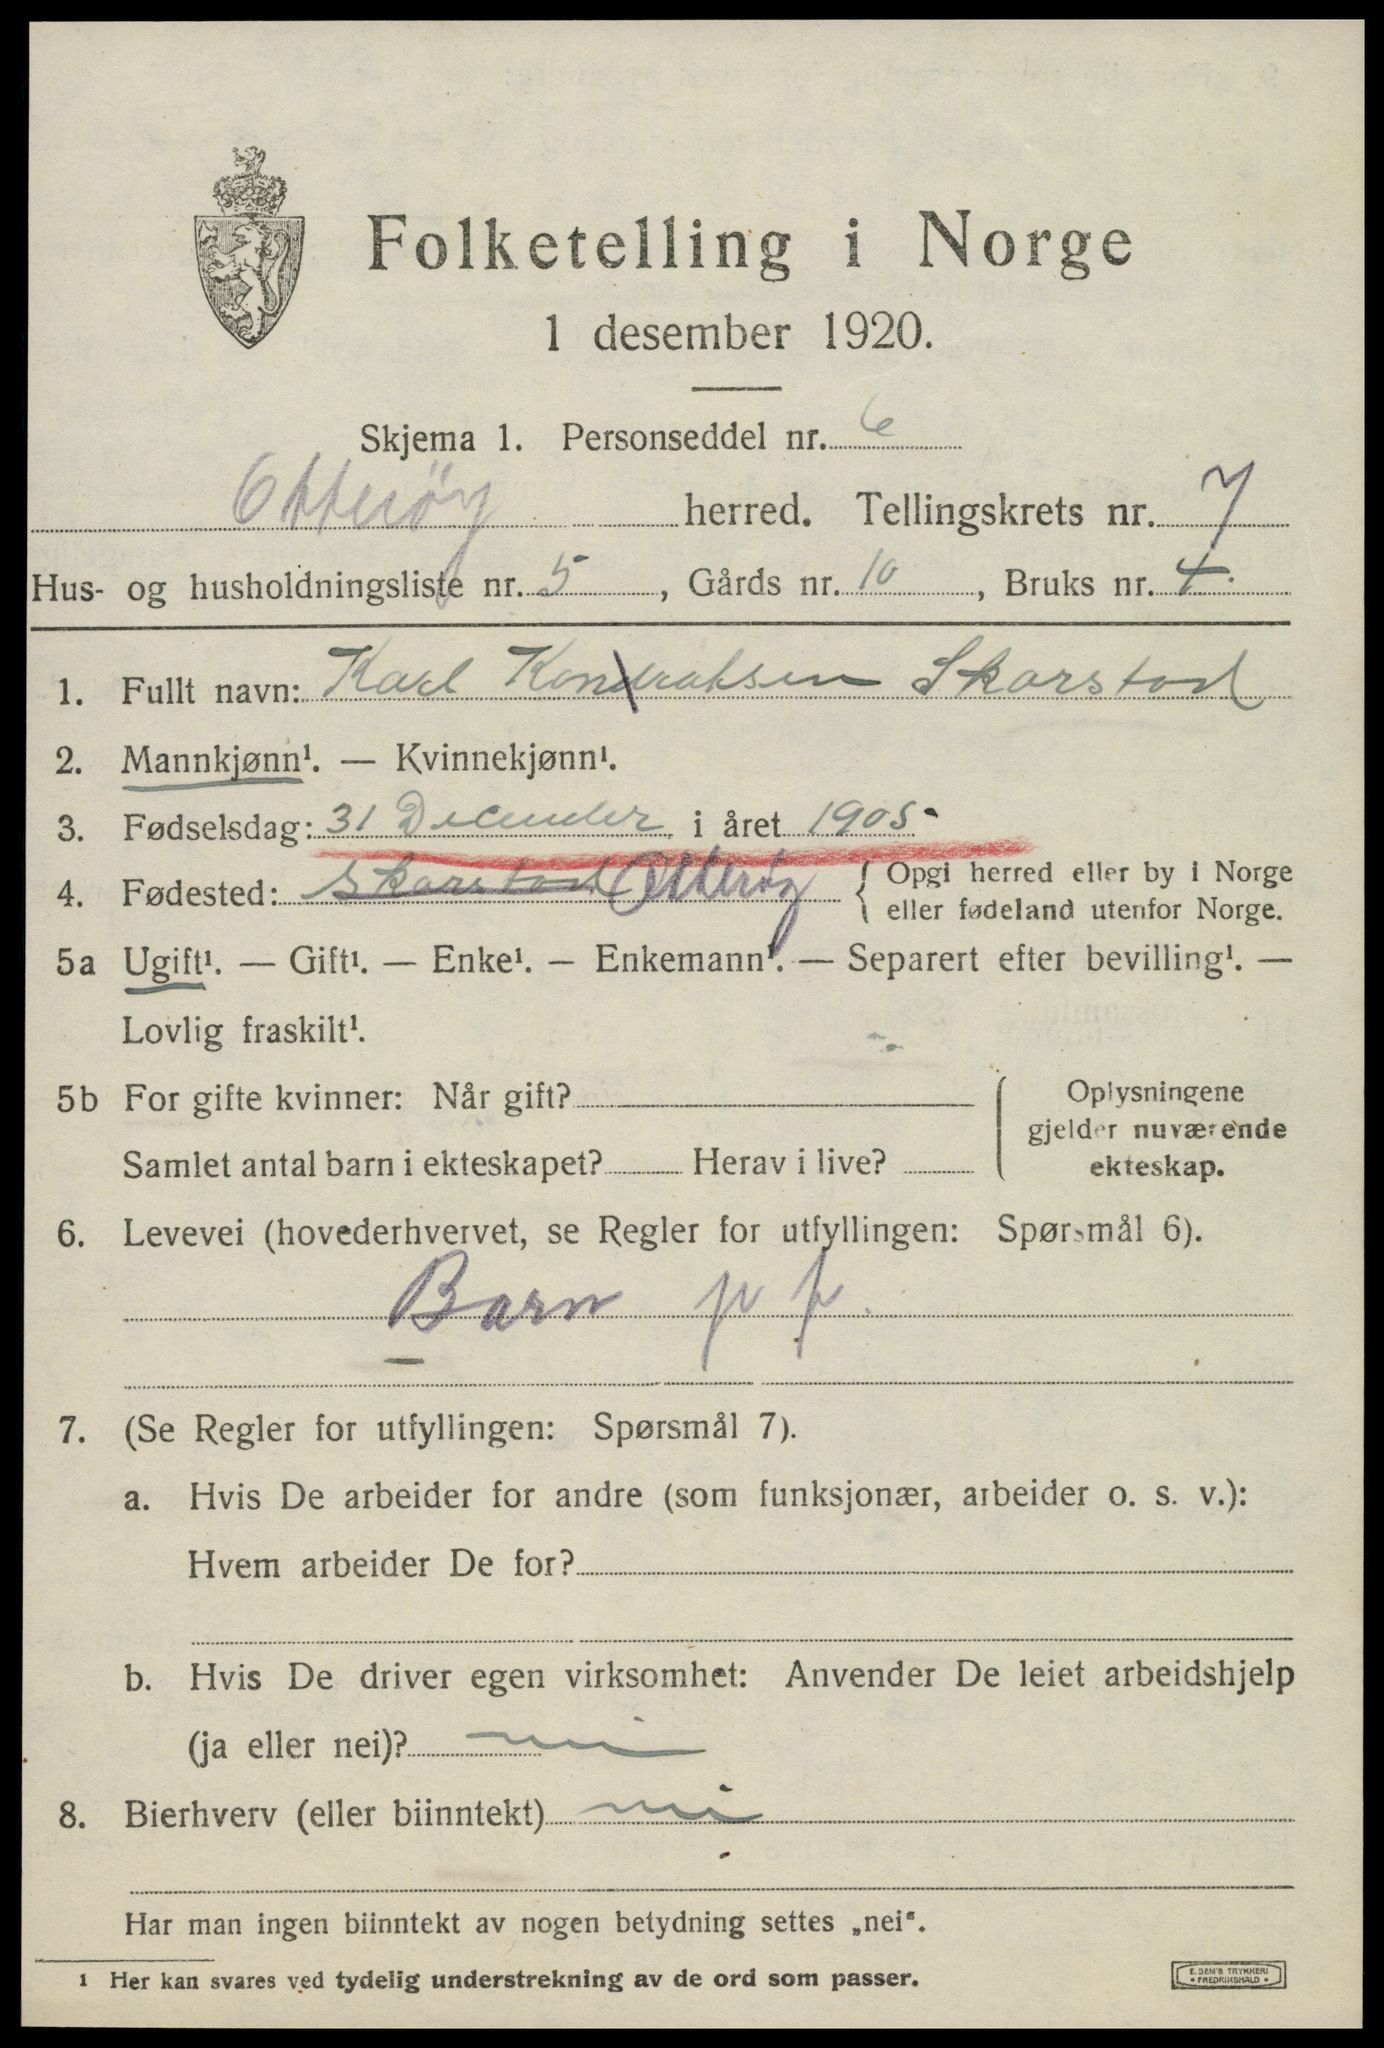 Folketelling i Norge
1 desember 1920.
Skjema 1. Personseddel nr. 6
Otterøy herred. Tellingskrets nr. 7
Hus- og husholdningsliste nr. 5, Gårds nr. 10, Bruks nr. 4.
1. Fullt navn: Karl Konradsen Skarstad
2. Mannkjønn¹. — Kvinnekjønn¹.
3. Fødselsdag: 31 December i året 1905
4. Fødested: Skarstad Otterøy { Opgi herred eller by i Norge
eller fødeland utenfor Norge.
5a Ugift¹. — Gift¹. — Enke¹. — Enkemann¹. — Separert efter bevilling¹. —
Lovlig fraskilt¹.
5b For gifte kvinner: Når gift? Oplysningene
gjelder nuværende
Samlet antal barn i ekteskapet? Herav i live? ekteskap.
6. Levevei (hovederhvervet, se Regler for utfyllingen: Spørsmål 6).
Barn p f.
7. (Se Regler for utfyllingen: Spørsmål 7).
a. Hvis De arbeider for andre (som funksjonær, arbeider o. s. v.):
Hvem arbeider De for?
b. Hvis De driver egen virksomhet: Anvender De leiet arbeidshjelp
(ja eller nei)? nei
8. Bierhverv (eller biinntekt) nei
Har man ingen biinntekt av nogen betydning settes „nei“.
1 Her kan svares ved tydelig understrekning av de ord som passer.
E. SEM'S TRYKKERI
• FREDRIKSHALD •